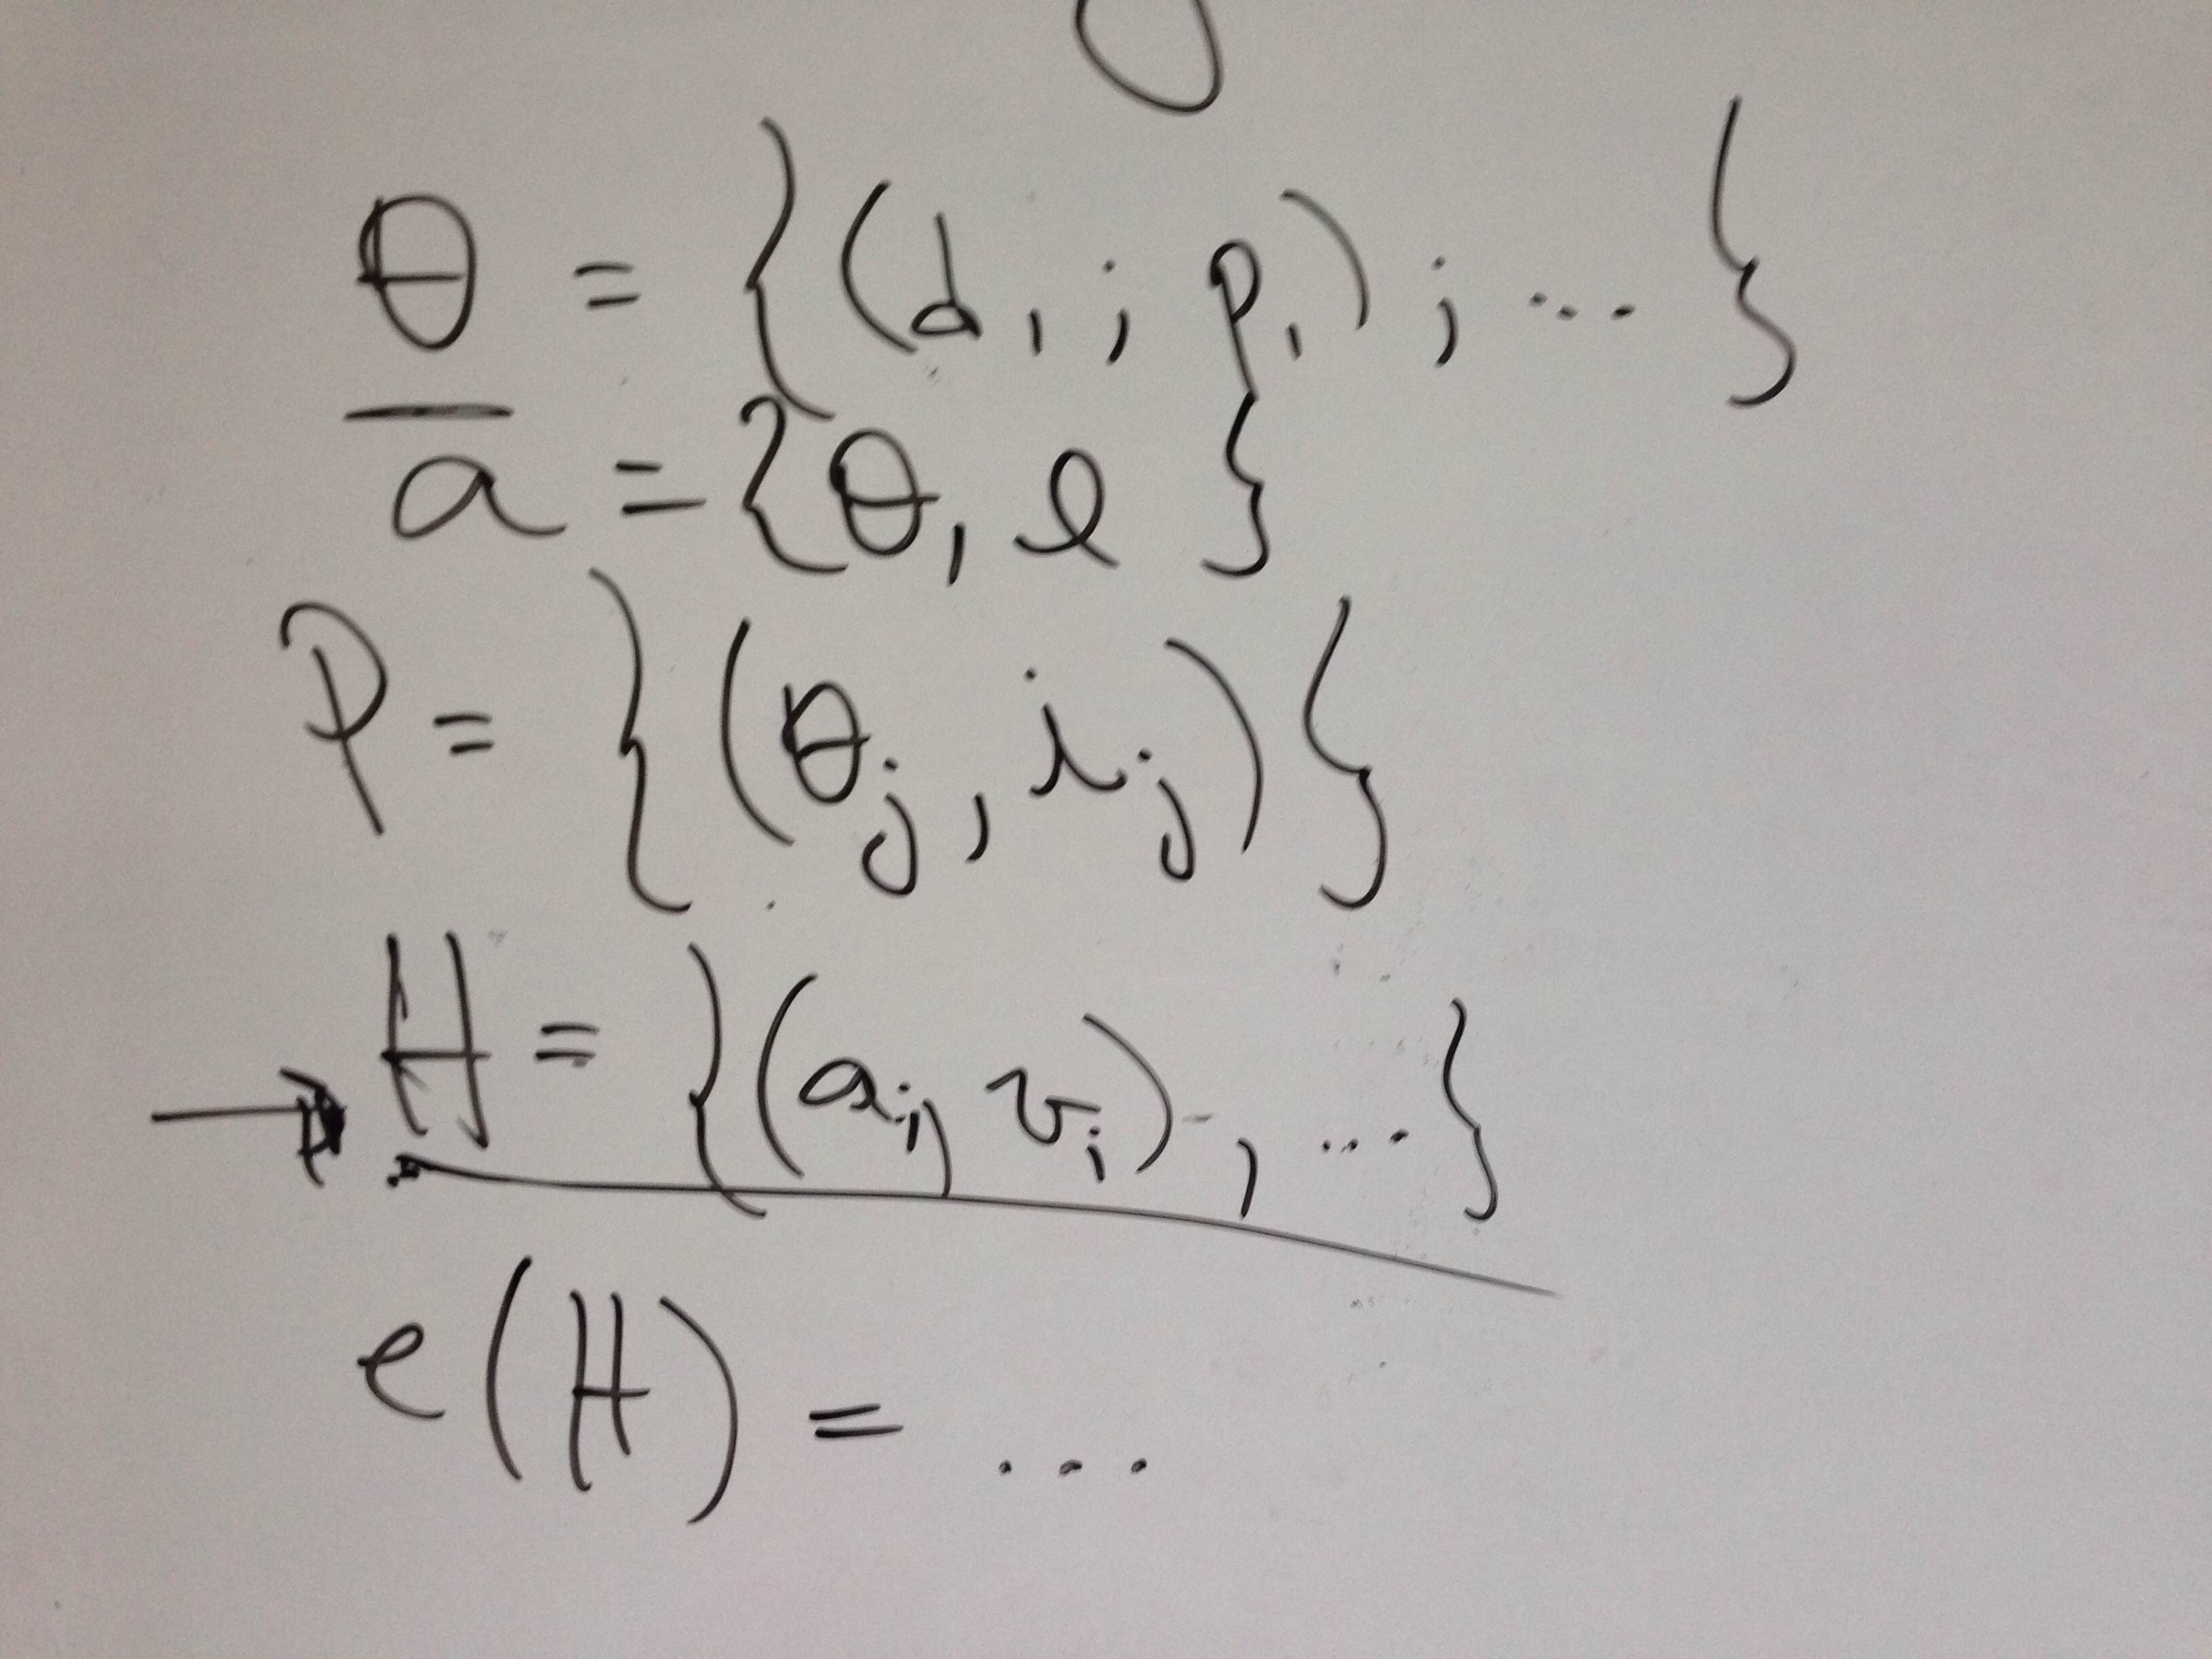 θ = {(d₁ ; p₁) ; ... }
a = {θ, l }
P = {(θⱼ, iⱼ)}
→ H = {(aᵢ, vᵢ), ...}
e(H) = ...